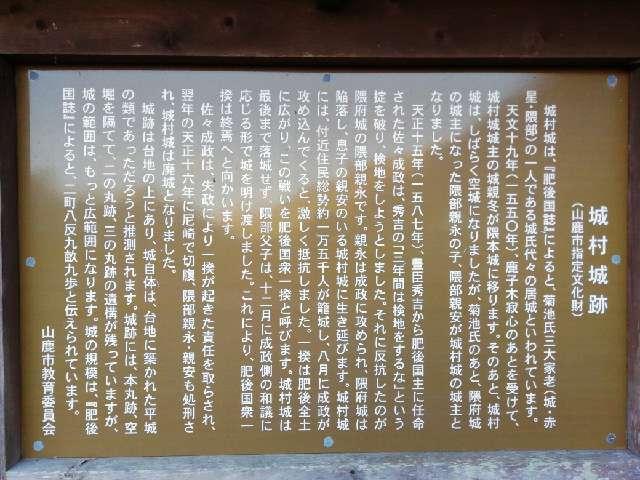 城村城跡
(山鹿市指定文化財)
城村城は、『肥後国誌』によると、菊池氏三大家老(城・赤
星・隈部)の一人である城氏代々の居城といわれています。
天文十九年(一五五〇年)、鹿子木寂心のあとを受けて、
城村城城主の城親冬が隈本城に移ります。そのあと、城村
城は、しばらく空城になりましたが、菊池氏のあと、隈府城
の城主になった隈部親永の子、隈部親安が城村城の城主と
なりました。
天正十五年(一五八七年)、豊臣秀吉から肥後国主に任命
された佐々成政は、秀吉の「三年間は検地をするな」という
掟を破り、検地をしようとしました。それに反抗したのが
隈府城の隈部親永です。親永は成政に攻められ、隈府城は
陥落し、息子の親安のいる城村城に生き延びます。城村城
には、付近住民総勢約一万五千人が籠城し、八月に成政が
攻め込んでくると、激しく抵抗しました。一揆は肥後全土
に広がり、この戦いを肥後国衆一揆と呼びます。城村城は
最後まで落城せず、隈部父子は、十二月に成政側の和議に
応じる形で城を明け渡しました。これにより、肥後国衆一
揆は終焉へと向かいます。
佐々成政は、失政により一揆が起きた責任を取らされ、
翌年の天正十六年に尼崎で切腹、隈部親永・親安も処刑さ
れ、城村城は廃城となりました。
城跡は台地の上にあり、城自体は、台地に築かれた平城
の類であっただろうと推測されます。城跡には、本丸跡、空
堀を隔てて、二の丸跡、三の丸跡の遺構が残っていますが、
城の範囲は、もっと広範囲になります。城の規模は、『肥後
国誌』によると、二町八反九畝九歩と伝えられています。
山鹿市教育委員会